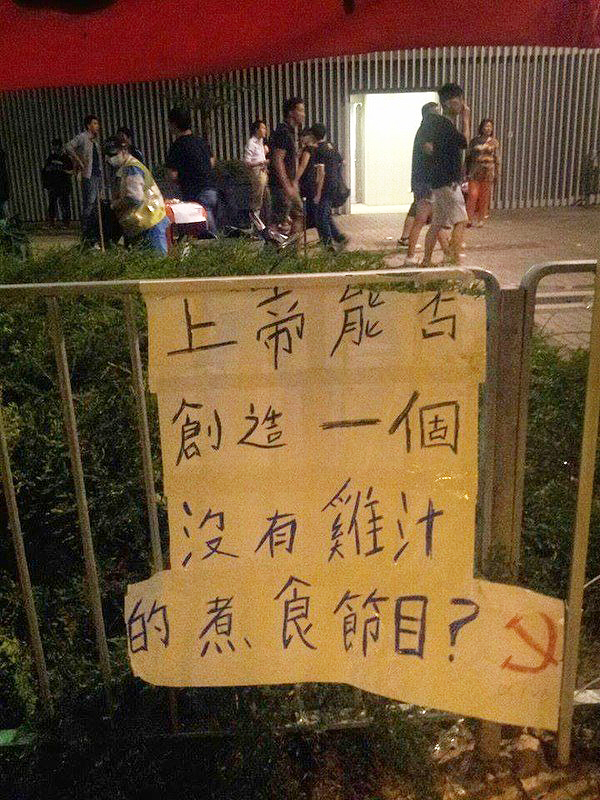 上帝能否
創造一個
沒有雞汁
的煮食節目?